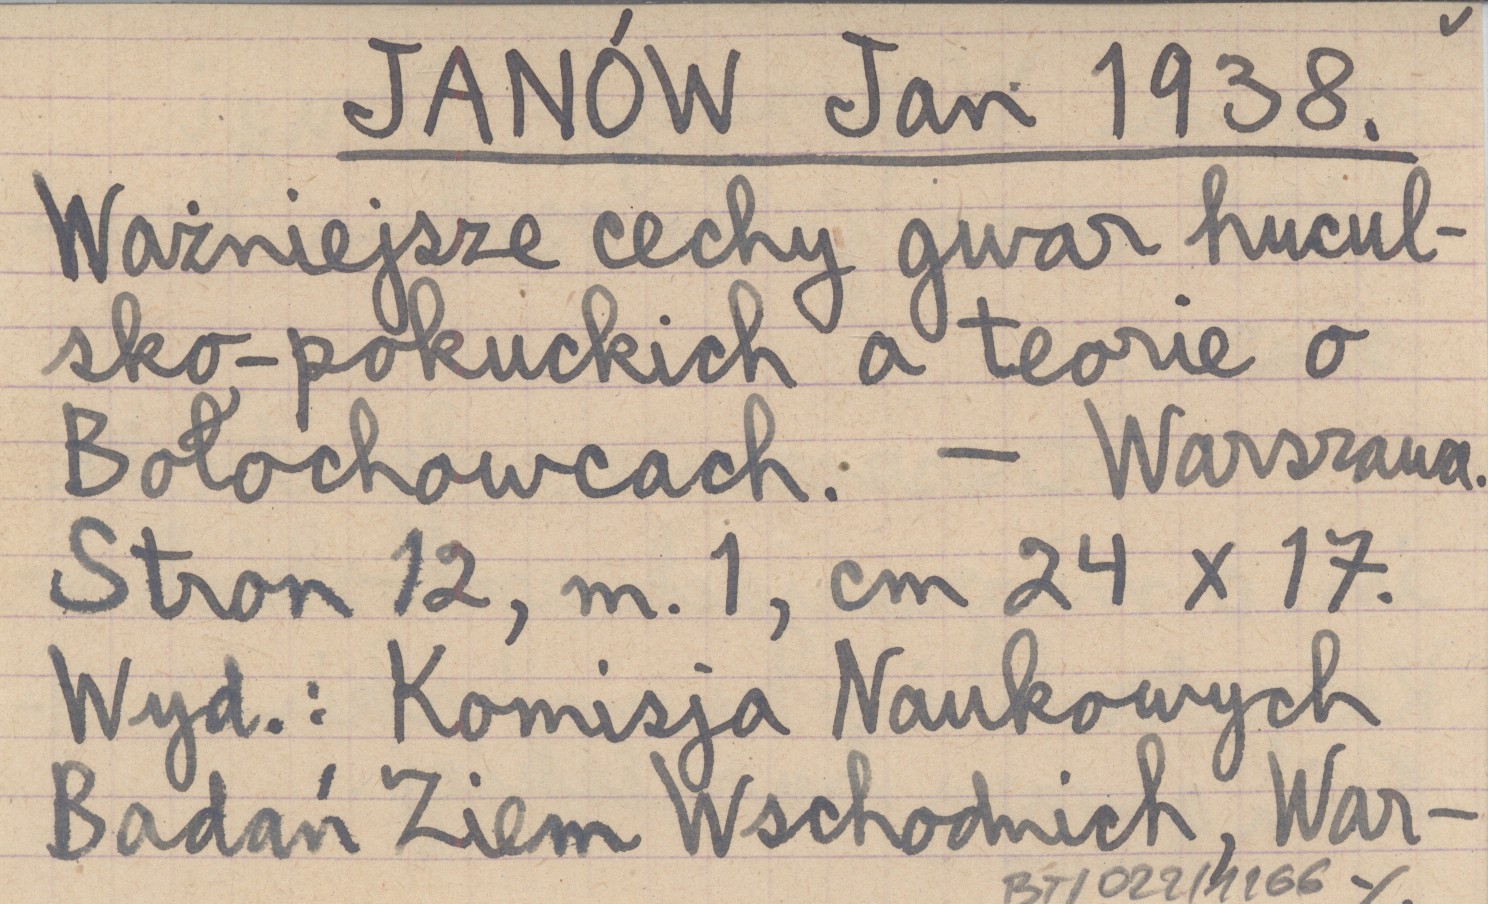 JANÓW Jan 1938.
Ważniejsze cechy gwar hucul-
sko-pokuckich a teorie o
Bołochowcach. — Warszawa.
Stron 12, m. 1, cm 24 x 17.
Wyd.: Komisja Naukowych
Badań Ziem Wschodnich, War-
BT/022/1166 -/.